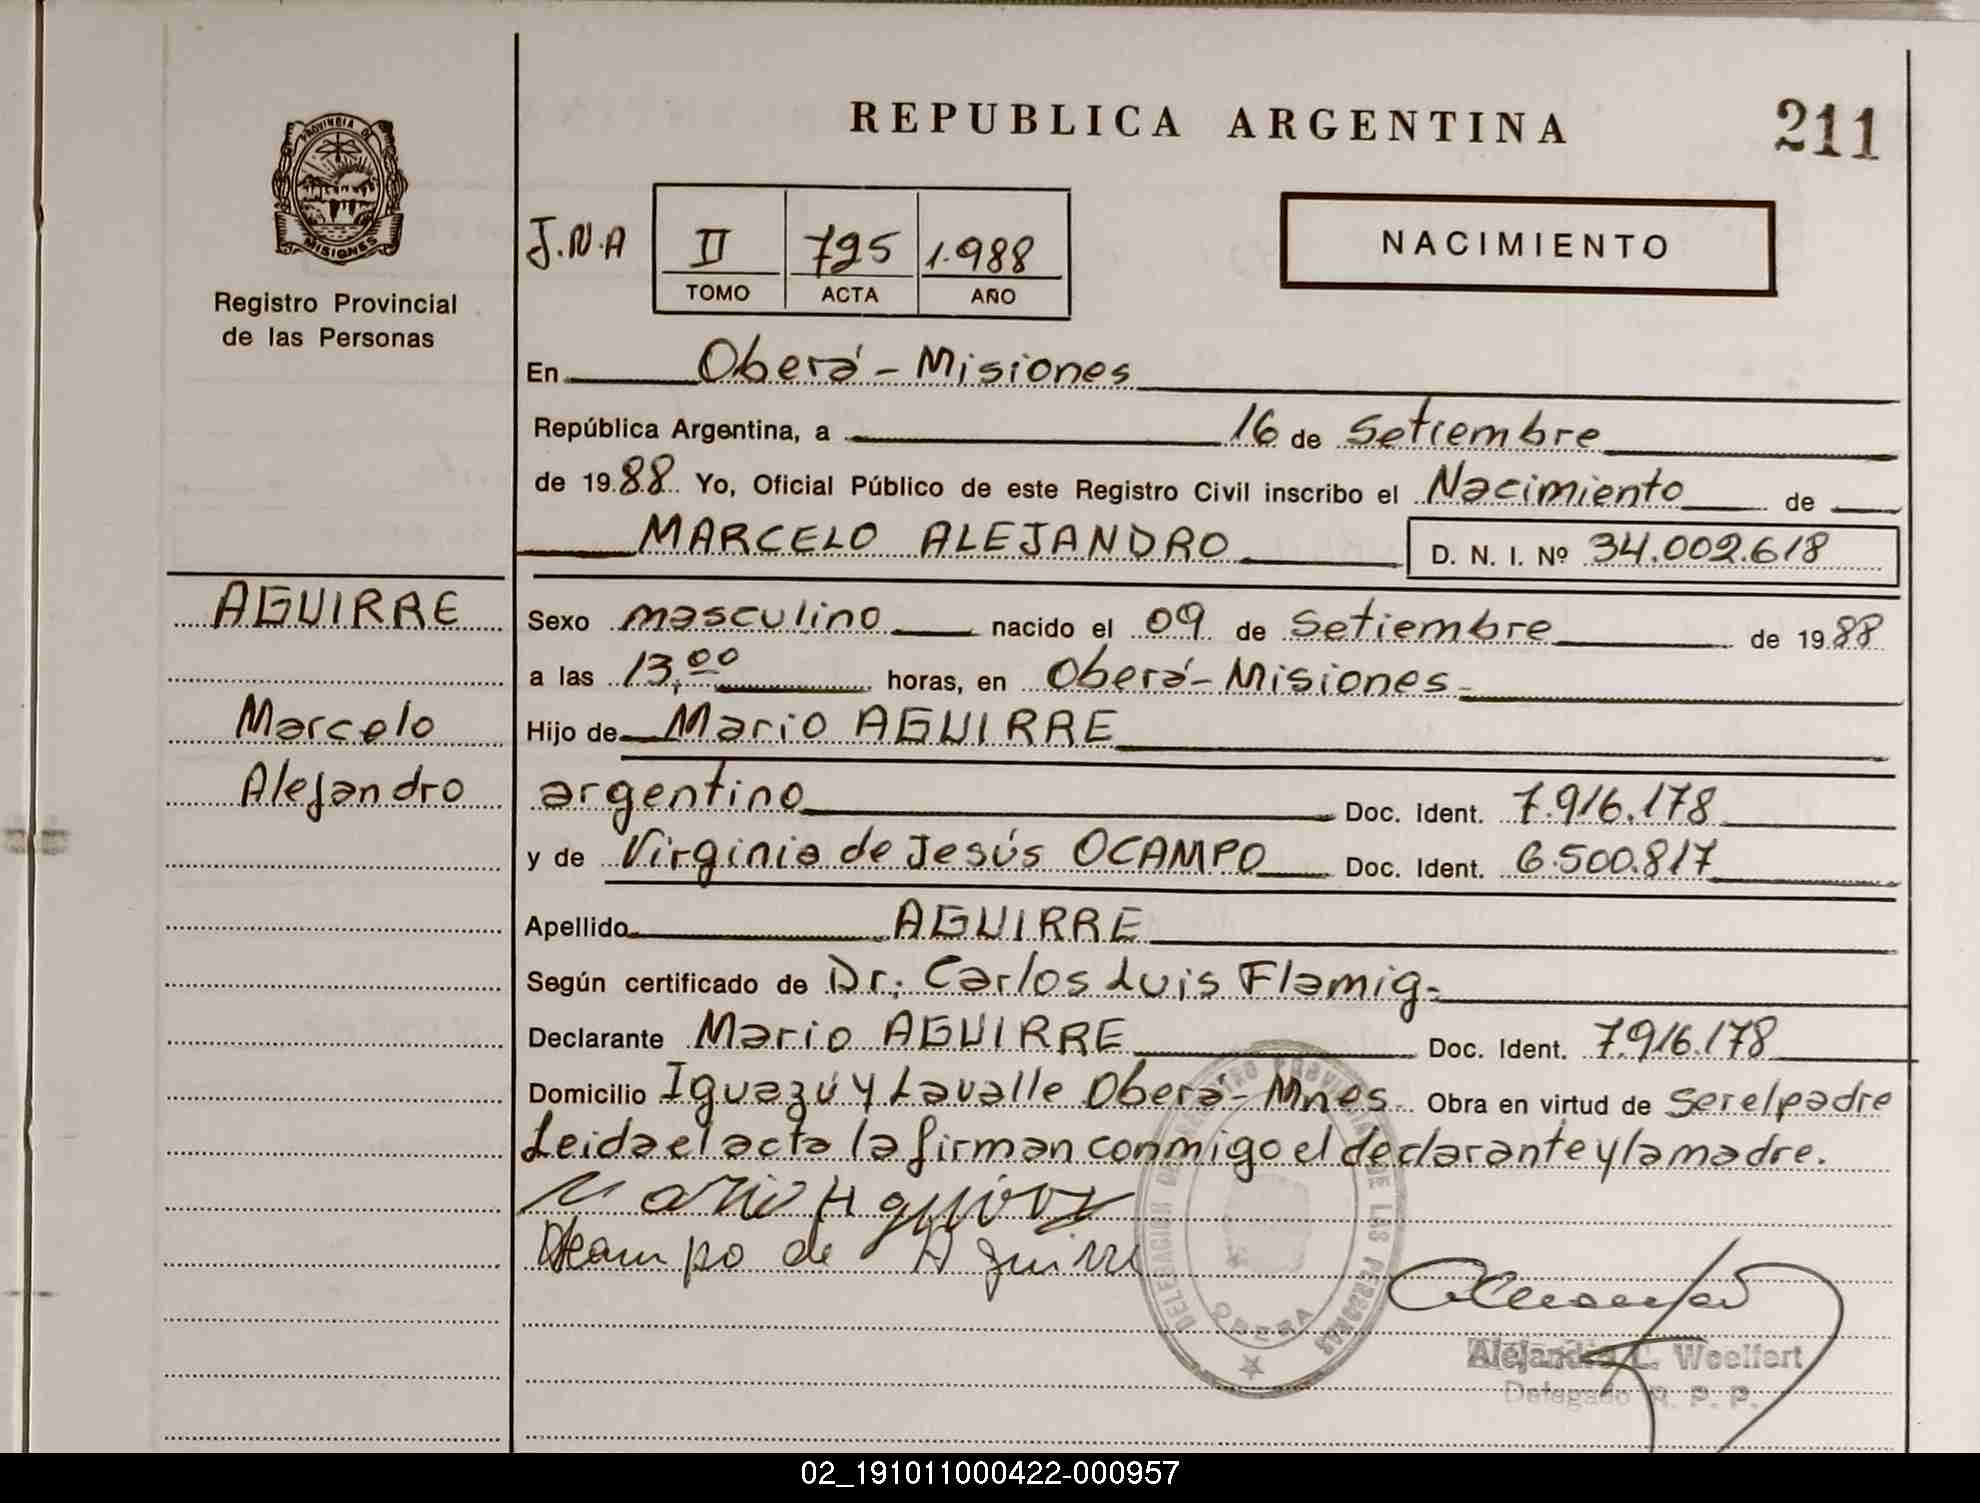 REPUBLICA ARGENTINA
211
PROVINCIA DE
MISIONES
Registro Provincial
de las Personas
J.N.A
II 725 1.988
TOMO ACTA AÑO
NACIMIENTO
En Oberá - Misiones
República Argentina, a 16 de Setiembre
de 19.88. Yo, Oficial Público de este Registro Civil inscribo el Nacimiento de
MARCELO ALEJANDRO D. N. I. Nº 34.002.618
AGUIRRE
Sexo masculino nacido el 09 de Setiembre de 1988
a las 13,00 horas, en Oberá - Misiones -
Marcelo
Hijo de Mario AGUIRRE
Alejandro
argentino Doc. Ident. 7.916.178
y de Virginia de Jesús OCAMPO Doc. Ident. 6.500.817
Apellido AGUIRRE
Según certificado de Dr: Carlos Luis Flamig.
Declarante Mario AGUIRRE Doc. Ident. 7.916.178
Domicilio Iguazú y Lavalle Oberá - Mnes. Obra en virtud de ser el padre
Leida el acta la firman conmigo el declarante y la madre.
Mario Aguirre
Ocampo de Aguirre
DELEGACION DEL REGISTRO PROVINCIAL DE LAS PERSONAS
OBERA
Alejandro C. Woelfert
Delegado R. P. P.
02_191011000422-000957